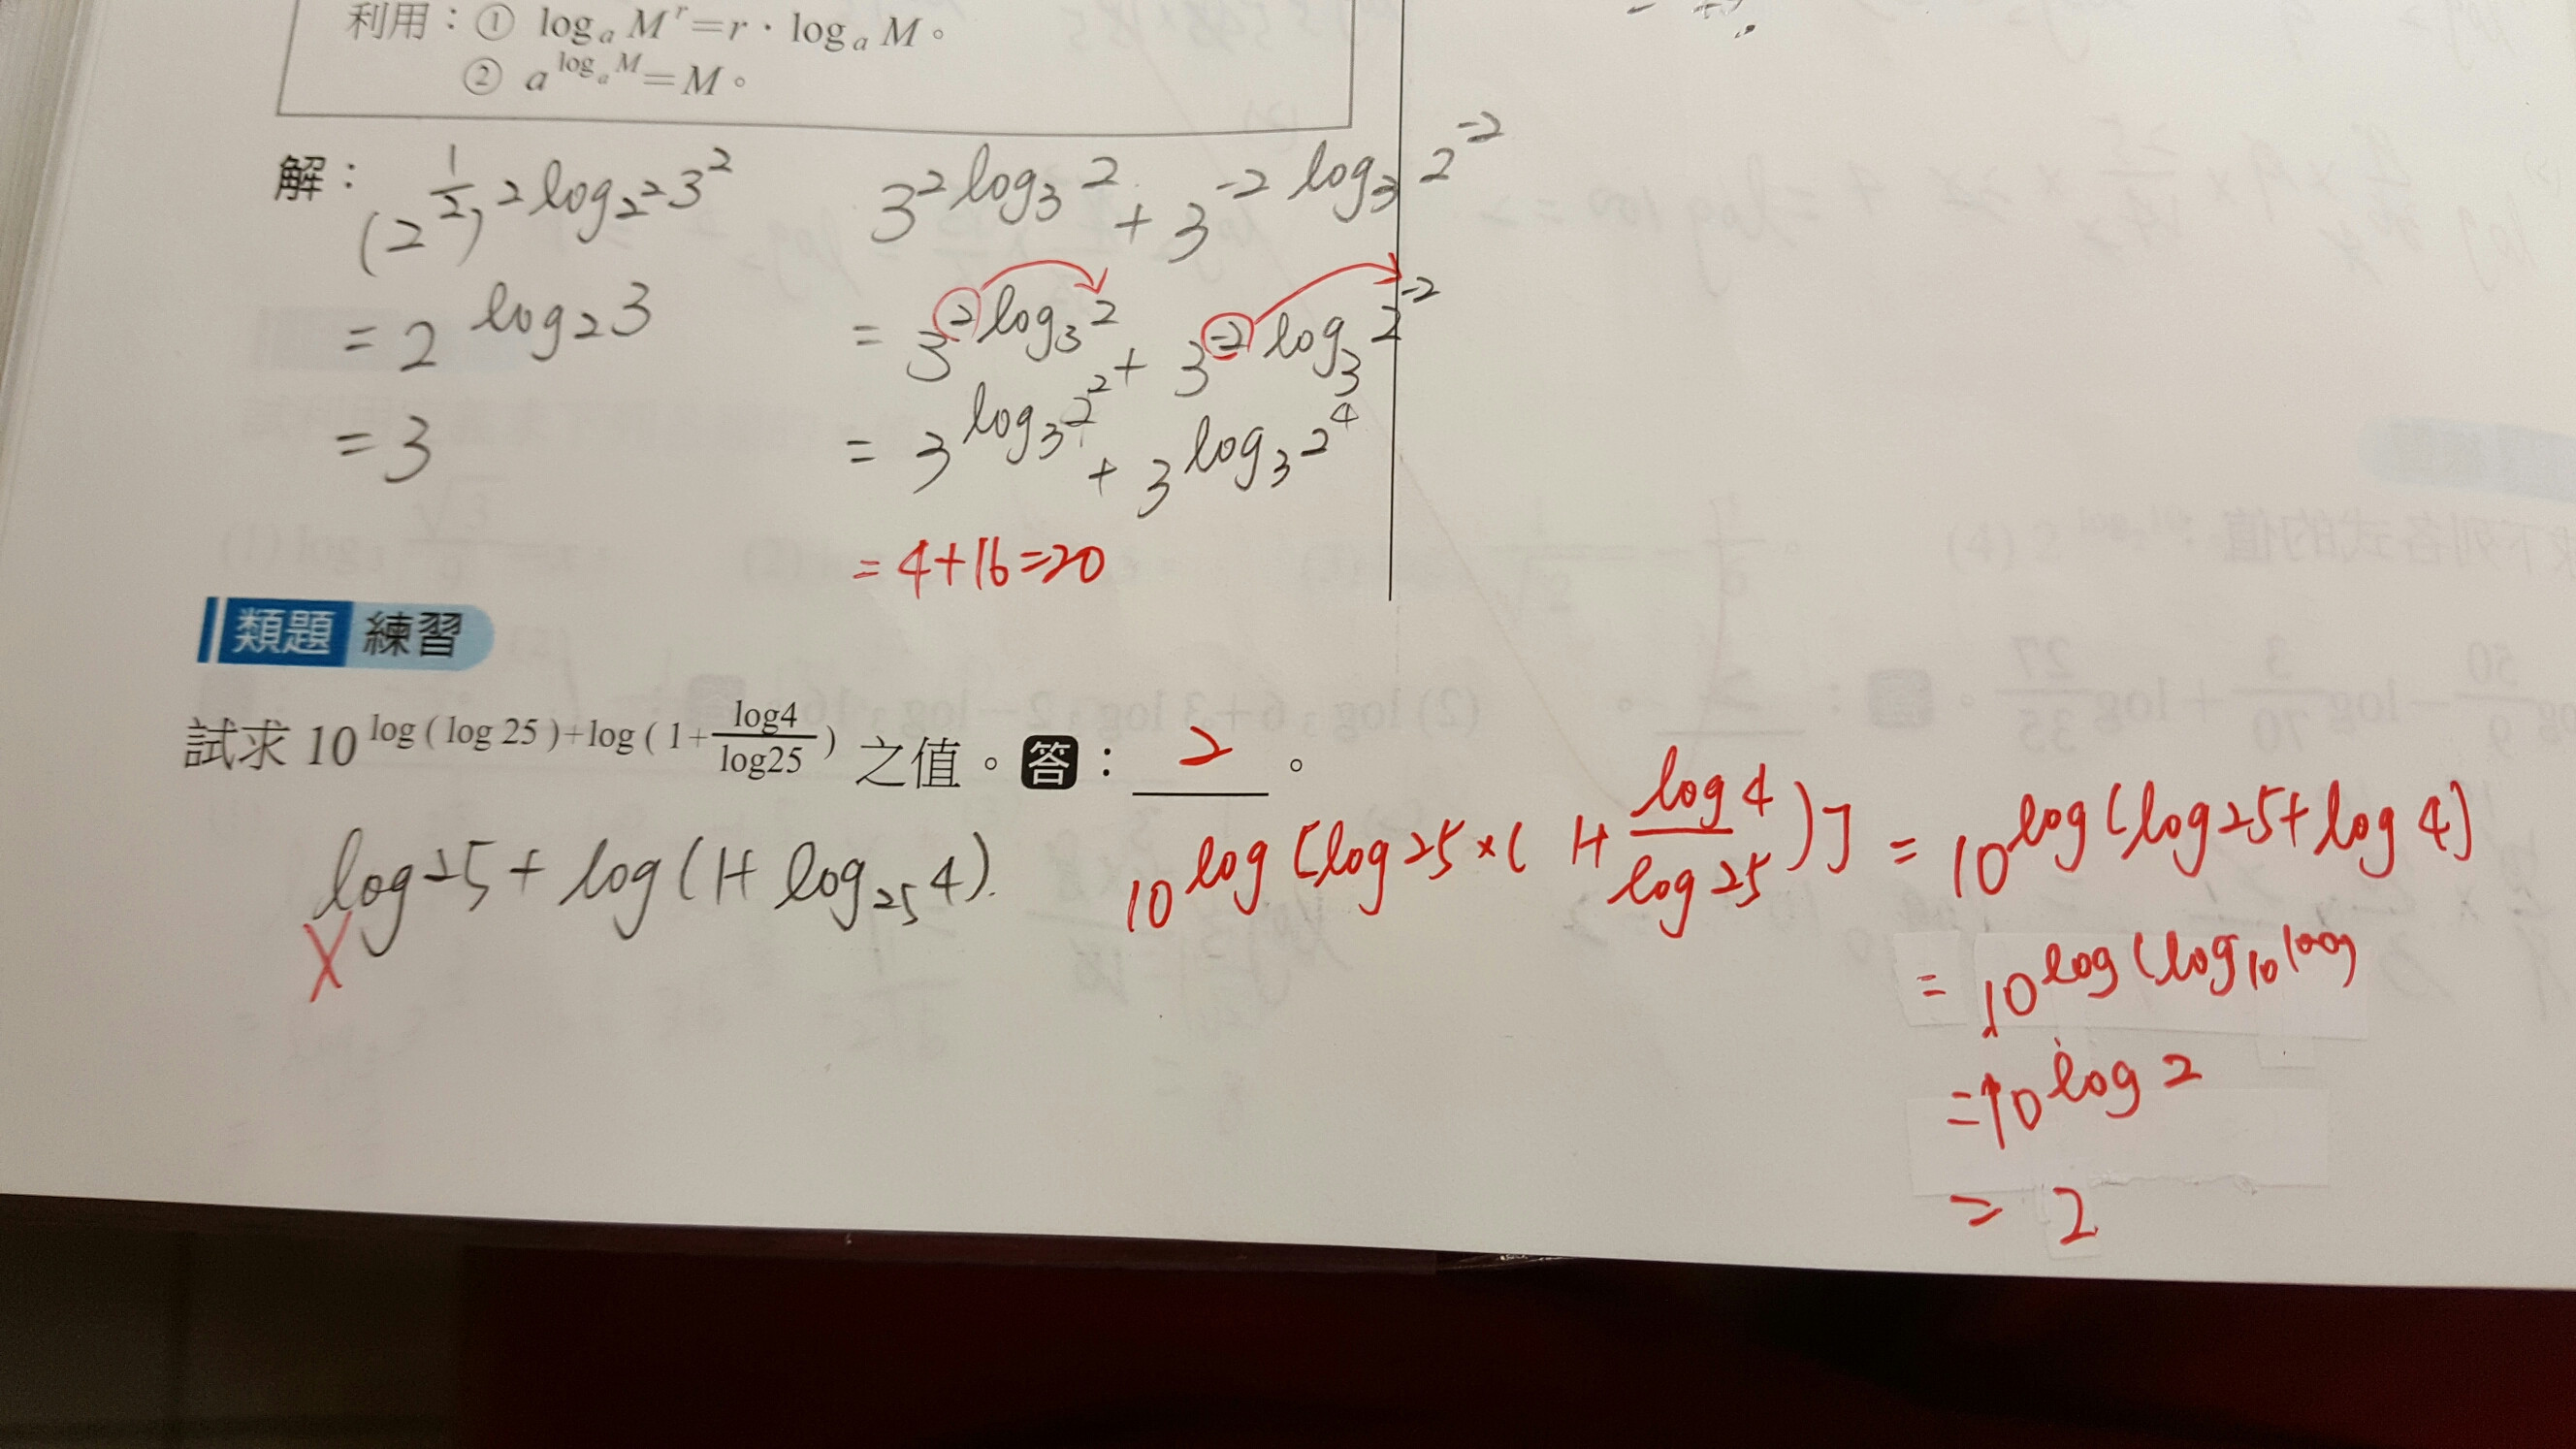 利用：① logₐ Mʳ=r · logₐ M。
② a^(logₐ M)=M。
解：
(2^(1/2))^(2log_(2²)3²)
= 2^(log₂3)
= 3
3^(2log₃2) + 3^(-2log₃2^(-2))
= 3^(2log₃2) + 3^(-2log₃2^(-2))
= 3^(log₃2²) + 3^(log₃2⁴)
= 4+16=20
類題 練習
試求 10^(log(log25)+log(1+log4/log25)) 之值。答：2。
log25 + log(1+log₂₅4).
X
10^(log[log25×(1+log4/log25)]) = 10^(log(log25+log4))
= 10^(log(log₁₀100))
=10^(log2)
= 2